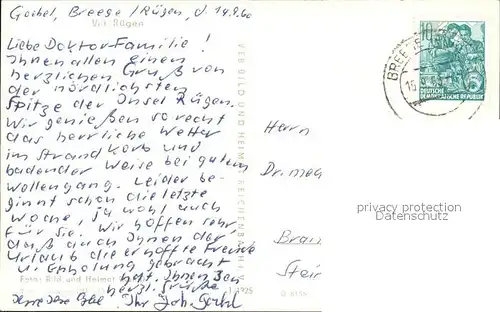 Goebel, Breege / Rügen, d. 14.9.60
Vitt Rügen
Liebe Doktor-Familie!
Ihnen allen einen
herzlichen Gruß von
der nördlichsten
Spitze der Insel Rügen.
Wir genießen so recht
das herrliche Wetter
im Strandkorb und
badender Weise bei gutem
Wellengang. Leider be-
ginnt schon die letzte
Woche, ja wohl auch
für Sie. Wir hoffen sehr,
daß auch Ihnen der
Urlaub die erhoffte Freude
u. Erholung gebracht
hat. Ihnen
herzl. Grüße
Ihr Joh.
Foto: Bild und Heimat
VEB BILD UND HEIMAT REICHENBACH I. V.
10
DEUTSCHE
DEMOKRATISCHE REPUBLIK
BREEGE
Herrn
Dr. med
privacy protection
Datenschutz